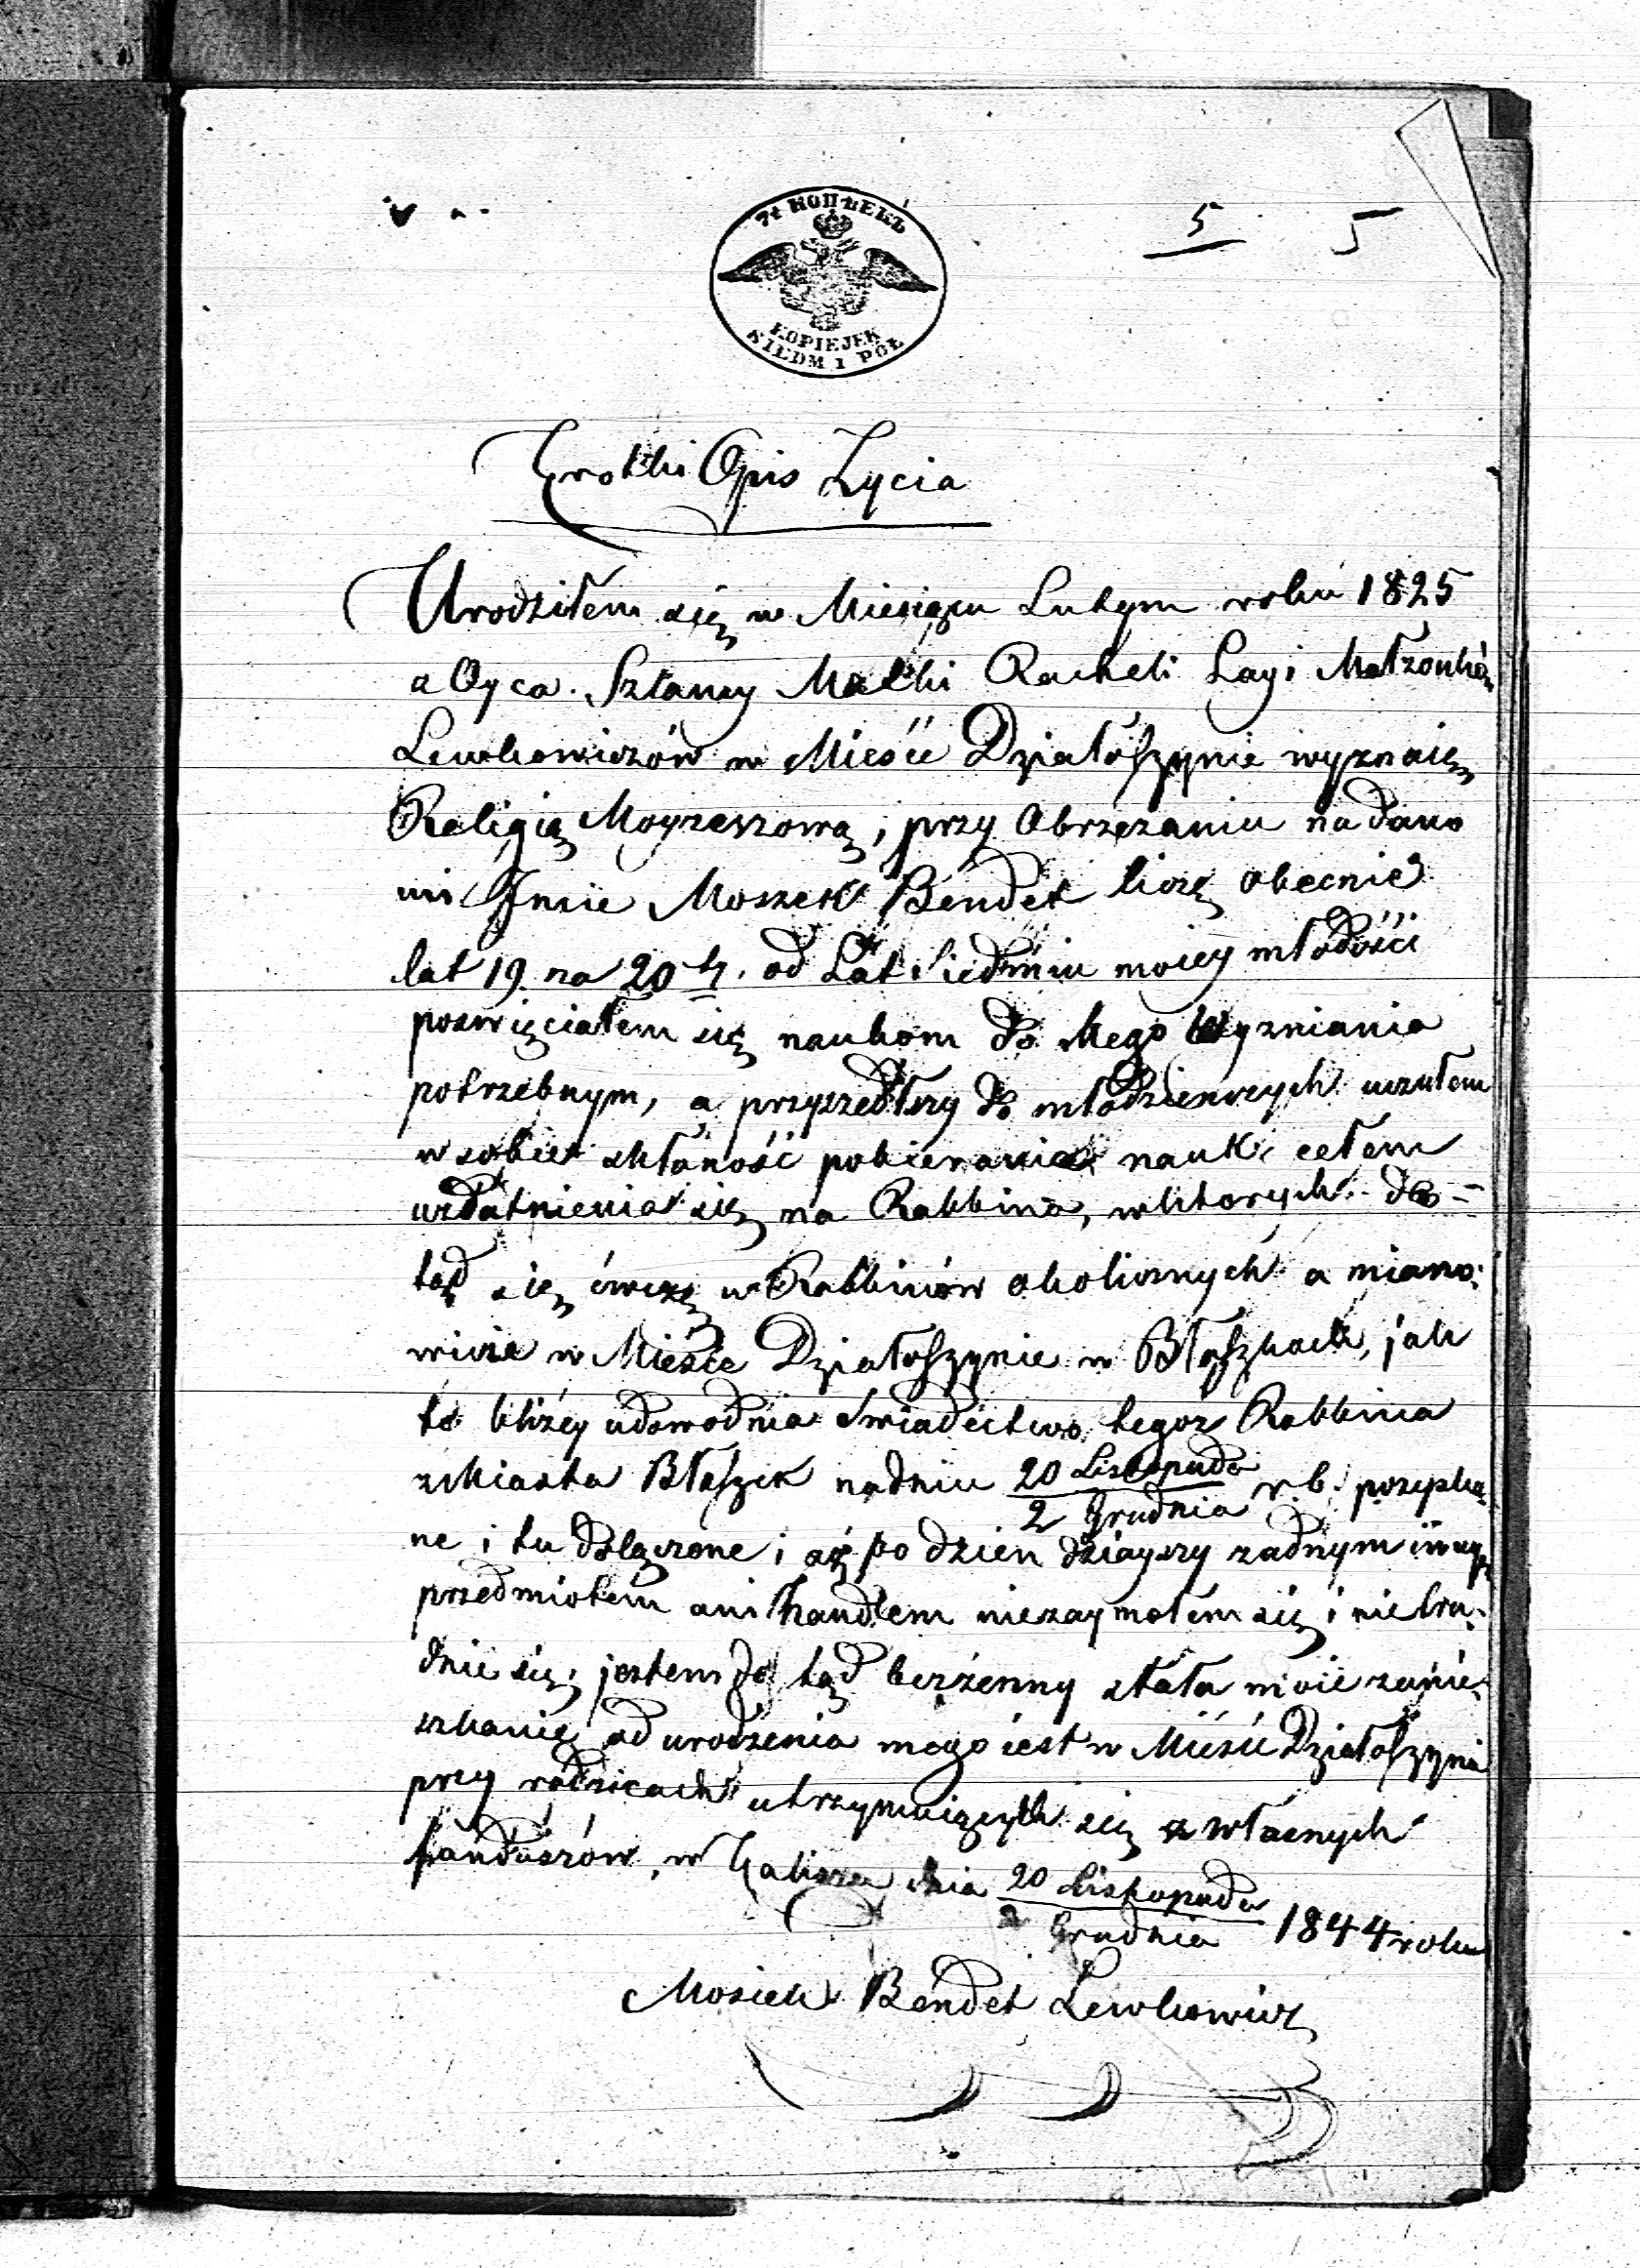 7½ КОПѢЕКЪ
KOPIEJEK
SIEDM I PÓŁ
5 5
Krotki Opis Życia
Urodziłem się w Miesiącu Lutym roku 1825
z Oyca Szlamy Matki Racheli Layi Małżonków
Lewkowiczów w Mieście Działoszynie wyznaię
Religią Moyżeszową, przy Obrzezaniu nadano
mi Imie Moszek Bendet liczę obecnie
lat 19 na 20ty. od Lat Siedmiu moiey młodości
poswięciałem się naukom do Mego Wyzniania
potrzebnym, a przyszedłszy do młodzienczych uczułem
w sobie skłaność pobierania nauk celem
uzdatnienia się na Rabbina, w ktorych do=
tąd się ćwiczę u Rabbinów okolicznych a miano:
wicie w Mieście Działoszynie w Błaszkach, jak
to bliżey udowodnia Swiadectwo tegoż Rabbina
z Miasta Błaszek na dniu 20 Listopada
2 Grudnia r. b. pozyska:
ne i tu dołączone i aż po dzień dziayszy żadnym innym
przedmiotem ani handlem niezaymołem się i nie tru:
dnie się, jestem do tąd bezżenny stałe moie zamie:
szkanie od urodzenia mego iest w Mieście Działoszynie
przy rodzicach utrzymuiących się z własnych
funduszów, w Kaliszu dnia 20 Listopada
2 Grudnia 1844 roku
Mosiek Bendet Lewkowicz